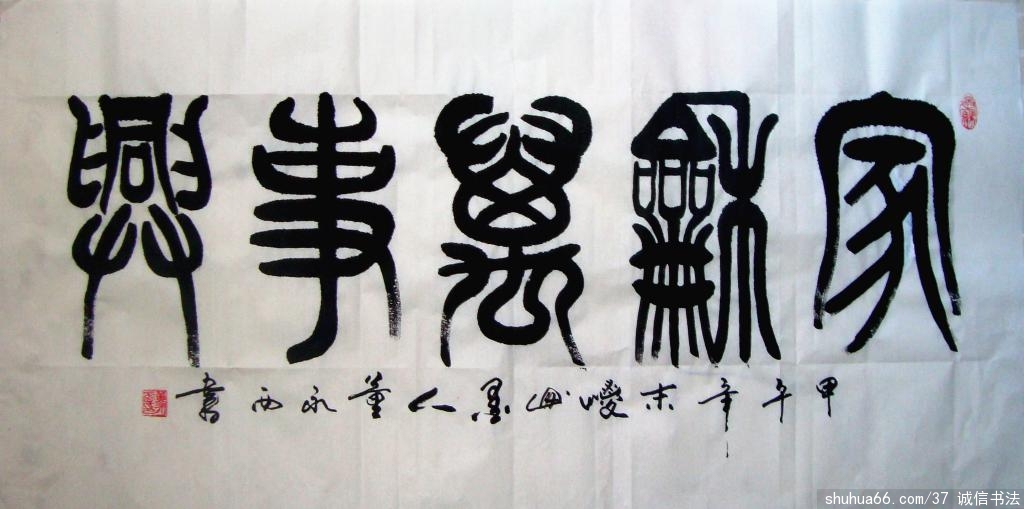 家龢萬事興
甲午年末嶺山墨人董永西書
shuhua66.com/37 诚信书法